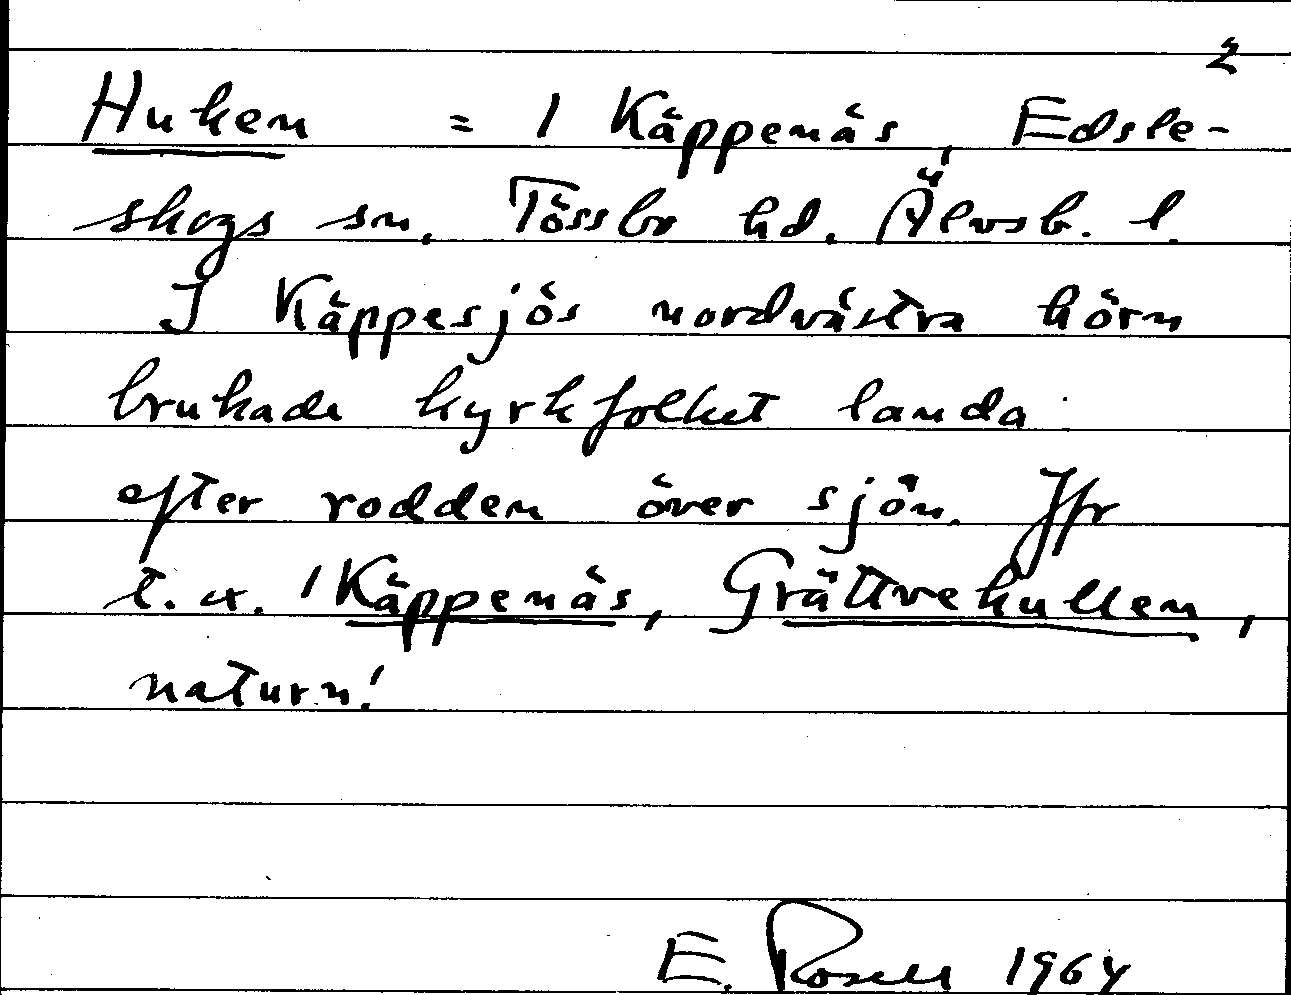 2
Huken = 1 Käppenäs, Edsle-
skogs sn. Tössbo hd. Älvsb. l.
I Käppesjös nordvästra hörn
brukade kyrkfolket landa
efter rodden över sjön. Jfr
t. ex. 1 Käppenäs, Grättvekullen,
naturn!
E. Rosell 1964